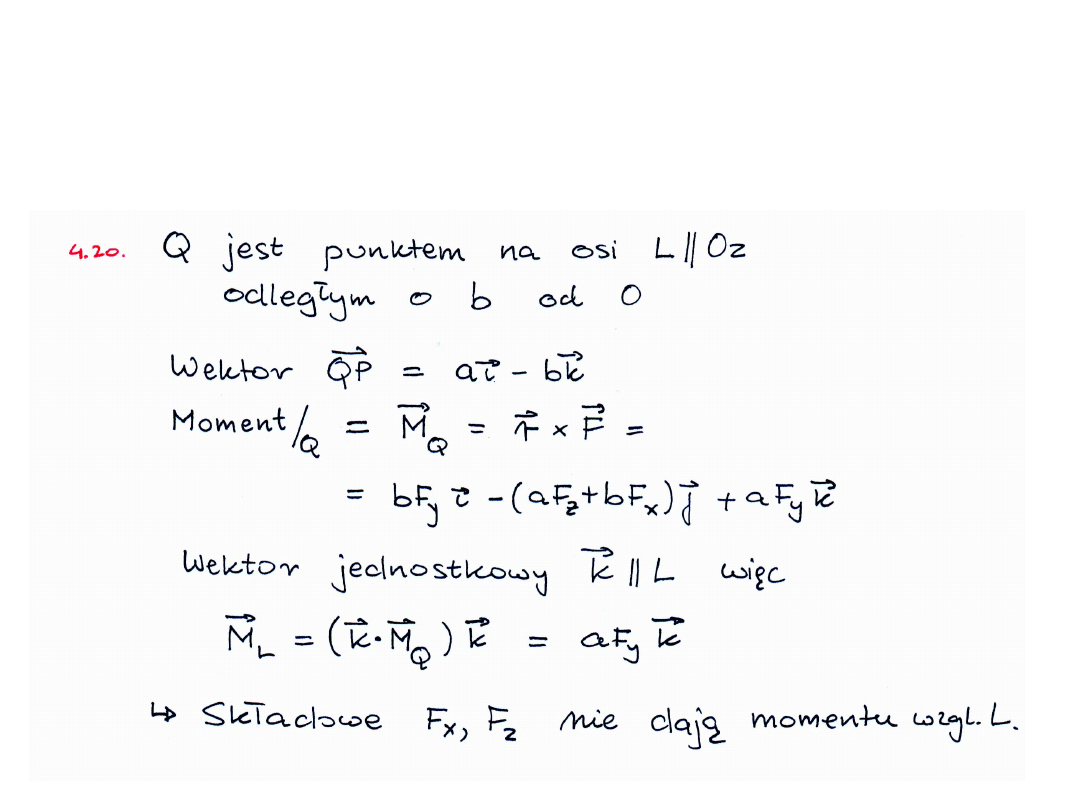 4.20. Q jest punktem na osi L || Oz
odległym o b od O
Wektor \vec{QP} = a\vec{i} - b\vec{k}
Moment/_Q = \vec{M}_Q = \vec{r} × \vec{F} =
= bF_y \vec{i} - (aF_z + bF_x)\vec{j} + aF_y \vec{k}
Wektor jednostkowy \vec{k} || L więc
\vec{M}_L = (\vec{k}·\vec{M}_Q) \vec{k} = aF_y \vec{k}
↳ Składowe F_x, F_z nie dają momentu wzgl. L.